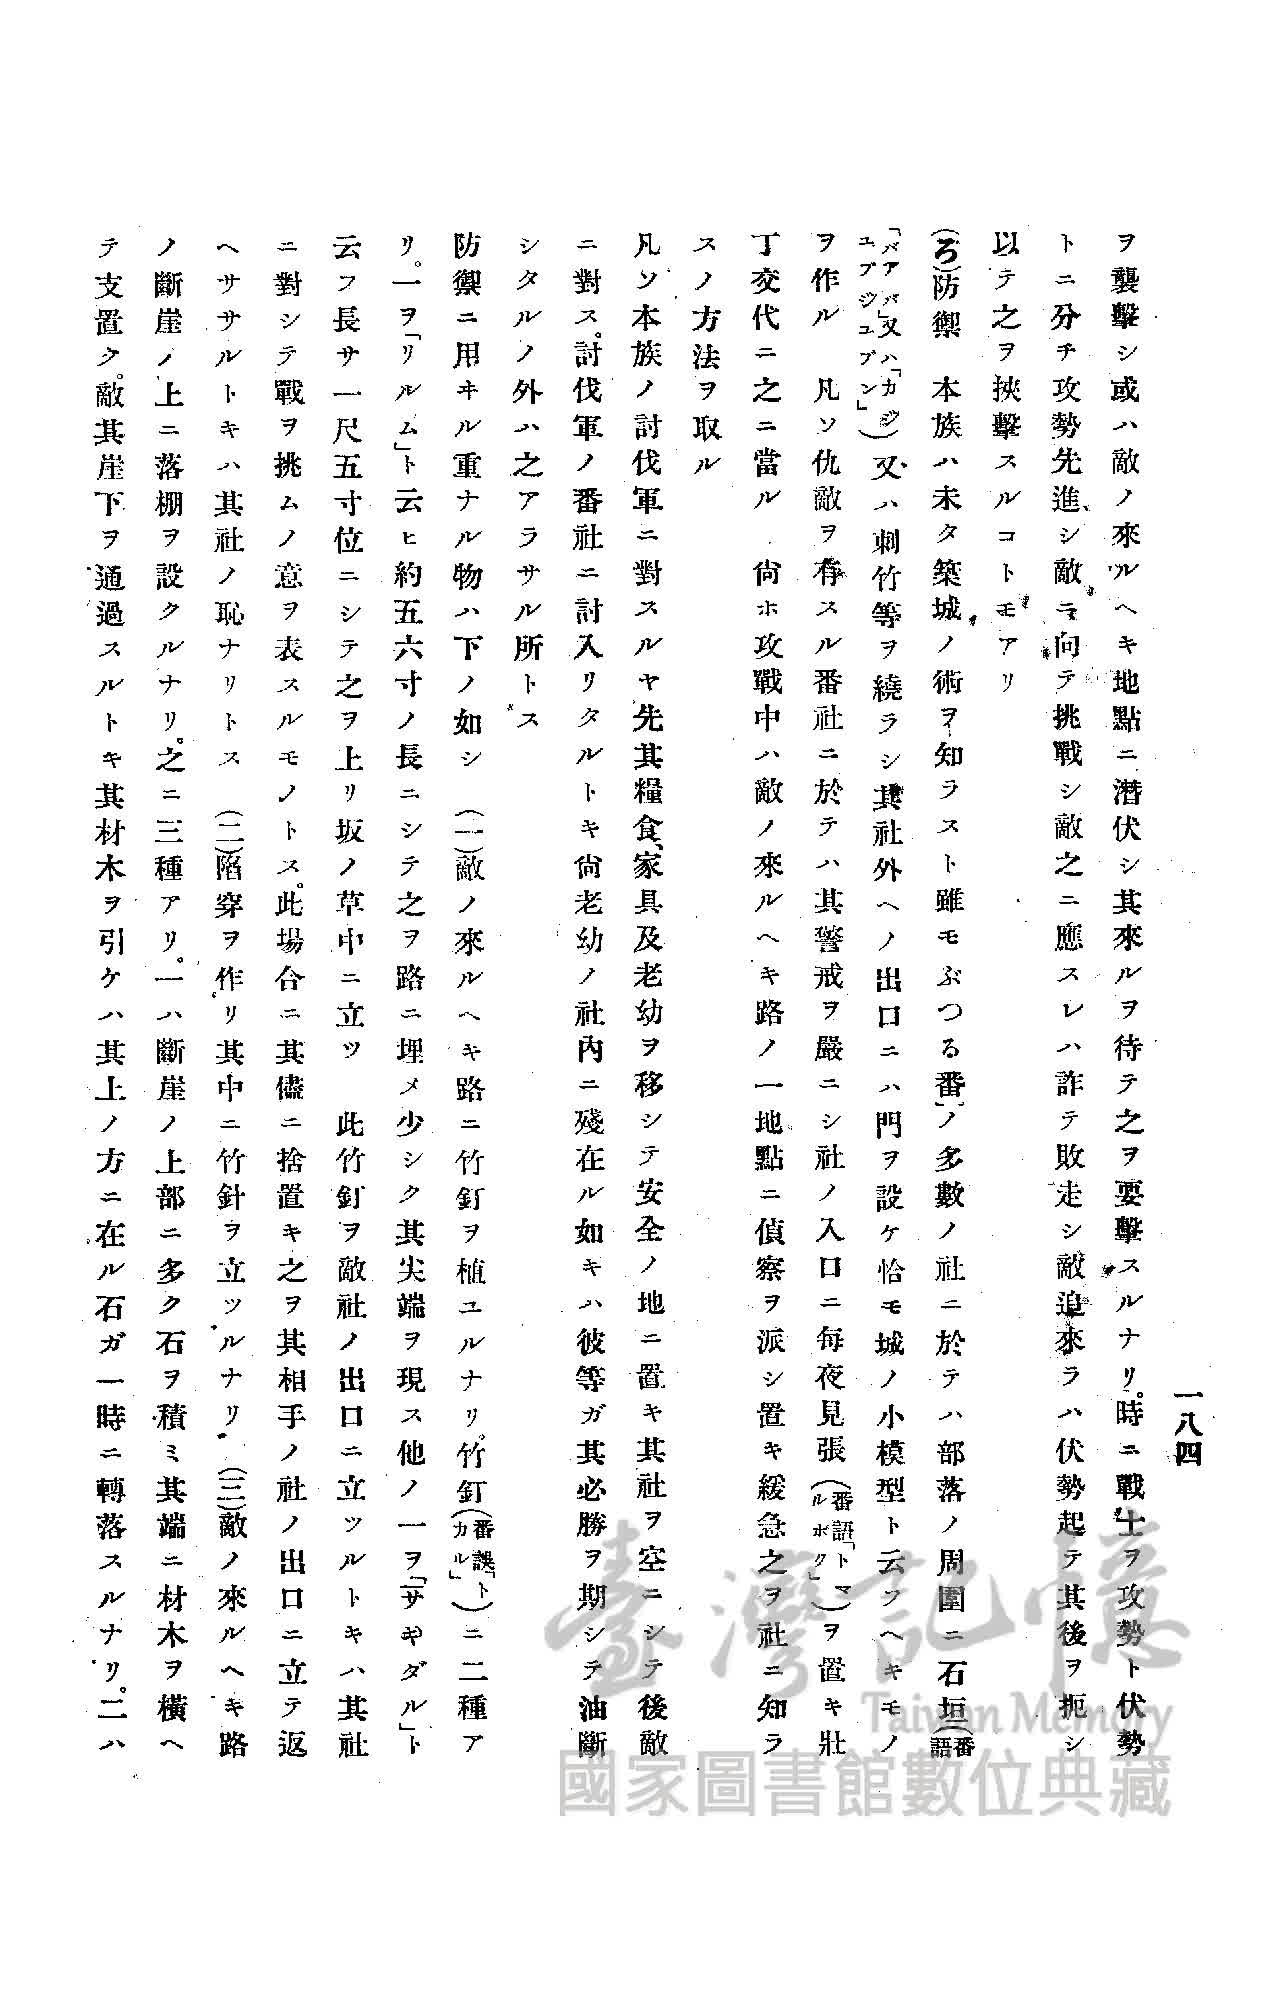 一八四
ヲ襲擊シ或ハ敵ノ來ルヘキ地點ニ潛伏シ其來ルヲ待テ之ヲ要擊スルナリ。時ニ戰士ヲ攻勢ト伏勢
トニ分チ攻勢先進シ敵ニ向テ挑戰シ敵之ニ應スレハ詐テ敗走シ敵追來ラハ伏勢起テ其後ヲ扼シ
以テ之ヲ挾擊スルコトモアリ
(ろ)防禦 本族ハ未タ築城ノ術ヲ知ラスト雖モぶつる番」ノ多數ノ社ニ於テハ部落ノ周圍ニ石垣(番語
「バアバ」又ハ「カジユブジユブン」)又ハ刺竹等ヲ繞ラシ其社外ヘノ出口ニハ門ヲ設ケ恰モ城ノ小模型ト云フヘキモノ
ヲ作ル 凡ソ仇敵ヲ存スル番社ニ於テハ其警戒ヲ嚴ニシ社ノ入口ニ每夜見張(番語「トマルボク」)ヲ置キ壯
丁交代ニ之ニ當ル 尙ホ攻戰中ハ敵ノ來ルヘキ路ノ一地點ニ偵察ヲ派シ置キ緩急之ヲ社ニ知ラ
スノ方法ヲ取ル
凡ソ本族ノ討伐軍ニ對スルヤ先其糧食、家具及老幼ヲ移シテ安全ノ地ニ置キ其社ヲ空ニシテ後敵
ニ對ス。討伐軍ノ番社ニ討入リタルトキ尙老幼ノ社內ニ殘在ル如キハ彼等ガ其必勝ヲ期シテ油斷
シタルノ外ハ之アラサル所トス
防禦ニ用ヰル重ナル物ハ下ノ如シ (一)敵ノ來ルヘキ路ニ竹釘ヲ植ユルナリ。竹釘(番語「トカル」)ニ二種ア
リ。一ヲ「リルム」ト云ヒ約五六寸ノ長ニシテ之ヲ路ニ埋メ少シク其尖端ヲ現ス他ノ一ヲ「サキダル」ト
云フ長サ一尺五寸位ニシテ之ヲ上リ坂ノ草中ニ立ツ 此竹釘ヲ敵社ノ出口ニ立ツルトキハ其社
ニ對シテ戰ヲ挑ムノ意ヲ表スルモノトス。此場合ニ其儘ニ捨置キ之ヲ其相手ノ社ノ出口ニ立テ返
ヘササルトキハ其社ノ恥ナリトス (二)陷穽ヲ作リ其中ニ竹針ヲ立ツルナリ (三)敵ノ來ルヘキ路
ノ斷崖ノ上ニ落棚ヲ設クルナリ。之ニ三種アリ。一ハ斷崖ノ上部ニ多ク石ヲ積ミ其端ニ材木ヲ橫ヘ
テ支置ク。敵其崖下ヲ通過スルトキ其材木ヲ引ケハ其上ノ方ニ在ル石ガ一時ニ轉落スルナリ。二ハ
臺灣記憶
Taiwan Memory
國家圖書館數位典藏